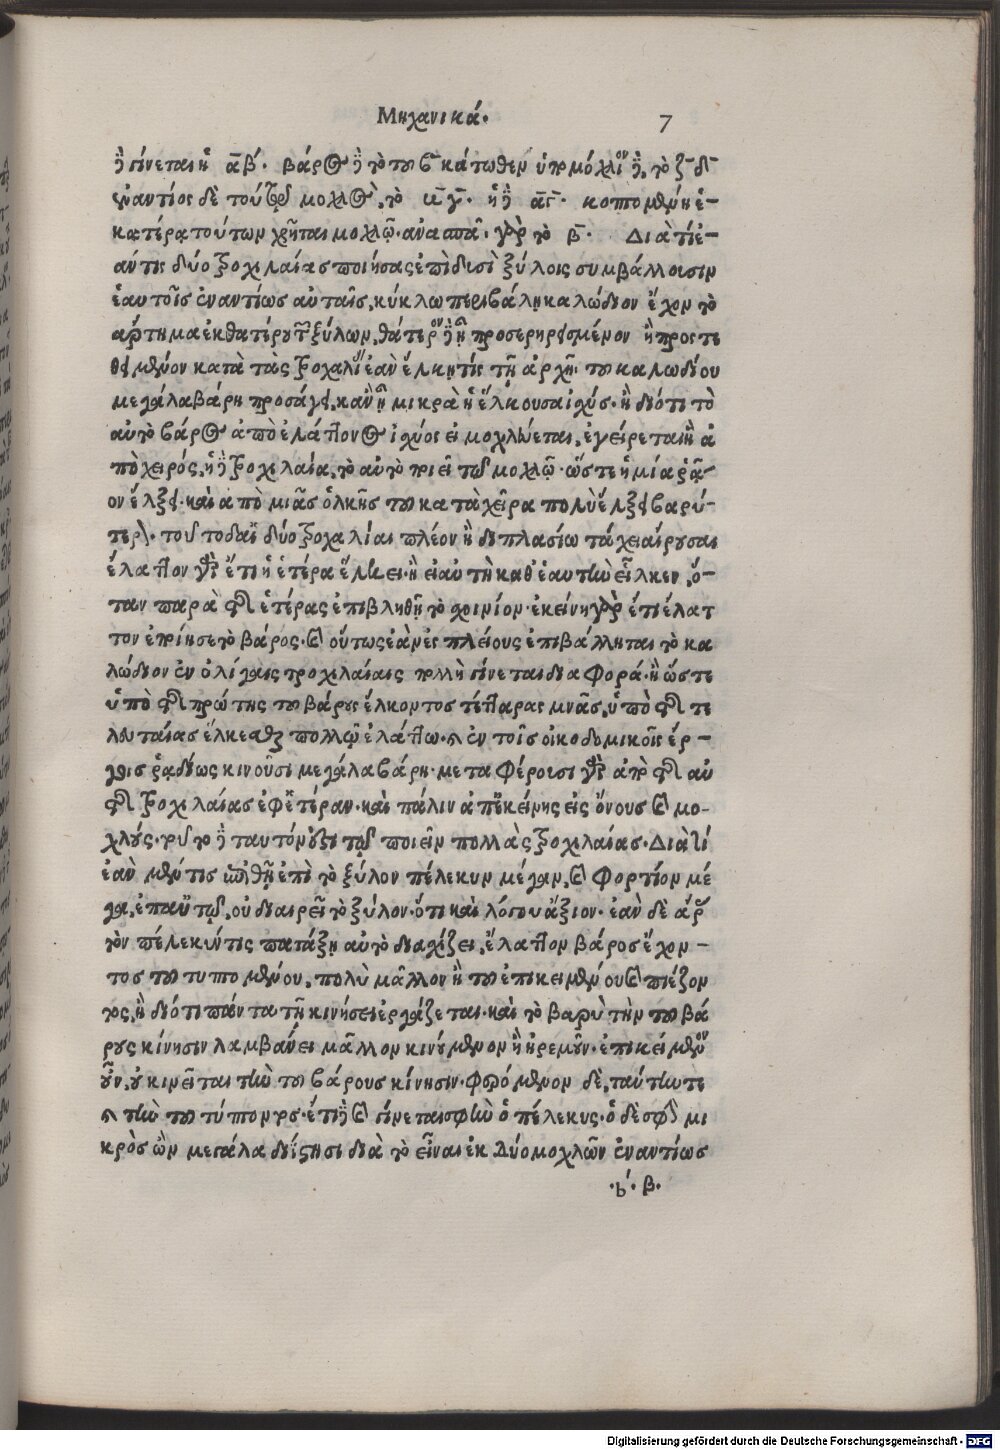 Μηχανικά. 7
ἢ γίνεται ἡ α̅β̅. βάρος ἢ τὸ τοῦ κάτωθεν ὑπομόχλιον ἢ, τὸ ζ̅ δ̅
ἐναντίος δὲ τούτῳ μοχλὸς, τὸ α̅γ̅. ἢ ἢ α̅γ̅. κοπτομένη ἑ-
κατέρα τούτων χρῆται μοχλῷ. ἀνασπᾶ. γὰρ τὸ β̅. Διὰ τί ἐ-
άν τις δύο τροχιλαίας ποιήσας ἐπὶ δυσὶ ξύλοις συμβάλλουσιν
ἑαυτοῖς ἐναντίως αὐταῖς, κύκλῳ περιβάλῃ καλώδιον ἔχον τὸ
ἄρτημα ἐκ θατέρου τῶν ξύλων, θάτερον ἢ ᾖ προσερηρεισμένον ἢ προστε
θειμένον κατὰ τὰς τροχαλίας, ἐὰν ἕλκῃ τίς τῇ ἀρχῇ τοῦ καλωδίου
μεγάλα βάρη προσάγει, κἂν ᾖ μικρὰ ἡ ἕλκουσα ἰσχύς. ἢ διότι τὸ
αὐτὸ βάρος ἀπὸ ἐλάττονος ἰσχύος εἰ μοχλεύεται, ἐγείρεται ἢ ἀ
πὸ χειρός, ἡ ἢ τροχιλαία, τὸ αὐτὸ ποιεῖ τῷ μοχλῷ. ὥστε ἡ μία ῥᾷ-
ον ἕλξει. καὶ ἀπὸ μιᾶς ὁλκῆς τοῦ κατὰ χεῖρα πολὺ ἕλξει βαρύ-
τερον. τοῦτο δ' αἱ δύο τροχαλίαι πλέον ἢ διπλασίῳ τάχει αἴρουσαι
ἔλαττον γὰρ ἔτι ἡ ἑτέρα ἕλκει. ἢ εἰ αὐτὴ καθ' ἑαυτὴν εἷλκεν, ὅ-
ταν παρὰ τῆς ἑτέρας ἐπιβληθῇ τὸ σχοινίον. ἐκείνη γὰρ ἔτι ἔλατ
τον ἐποίησε τὸ βάρος. καὶ οὕτως ἐὰν εἰς πλείους ἐπιβάλληται τὸ κα
λώδιον ἐν ὀλίγαις τροχιλαίαις πολλὴ γίνεται διαφορά. ἢ ὥστε
ὑπὸ τῆς πρώτης τοῦ βάρους ἕλκοντος τέτταρας μνᾶς, ὑπὸ τῆς τε
λευταίας ἕλκεσθαι πολλῷ ἐλάττω. καὶ ἐν τοῖς οἰκοδομικοῖς ἔρ-
γοις ῥᾳδίως κινοῦσι μεγάλα βάρη. μεταφέρουσι γὰρ ἀπὸ τῆς αὐ
τῆς τροχιλαίας ἐφ' ἑτέραν. καὶ πάλιν ἀπ' ἐκείνης εἰς ὄνους καὶ μο-
χλούς. τοῦτο ἢ ταυτόν ἐστι τῷ ποιεῖν πολλὰς τροχιλαίας. Διὰ τί
ἐὰν μέν τις ἐπιθῇ ἐπὶ τὸ ξύλον πέλεκυν μέγαν, καὶ φορτίον μέ
γα, ἐπ' αὐτῷ, οὐ διαιρεῖ τὸ ξύλον. ὅτι καὶ λόγου ἄξιον. ἐὰν δὲ ἄρας
τὸν πέλεκύν τις πατάξῃ αὐτὸ διασχίζει, ἔλαττον βάρος ἔχον-
τος τοῦ τυπομένου. πολὺ μᾶλλον ἢ τοῦ ἐπικειμένου καὶ πιέζον
τος, ἢ διότι πάντα τῇ κινήσει ἐργάζεται. καὶ τὸ βαρὺ τὴν τοῦ βά
ρους κίνησιν λαμβάνει μᾶλλον κινούμενον ἢ ἠρεμοῦν. ἐπικείμενον
οὖν, οὐ κινεῖται τὴν τοῦ βάρους κίνησιν. φερόμενον δὲ, ταύτην τε
καὶ τὴν τοῦ τύπτοντος. ἔτι ἢ καὶ γίνεται σφὴν ὁ πέλεκυς. ὁ δὲ σφὴν μι
κρὸς ὢν μεγάλα διίστησι διὰ τὸ εἶναι ἐκ Δύο μοχλῶν ἐναντίως
.b. β.